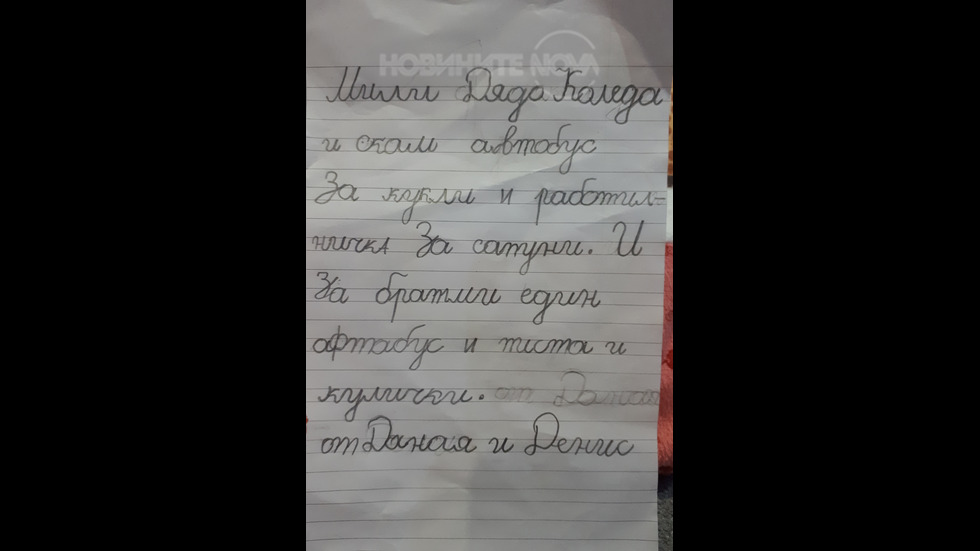 НОВИНИТЕ NOVA
Мили Дядо Коледа
и скам автобус
За кукли и работил-
ничка За сапуни. И
За братми един
афтабус и писта и
кулички. от Даная
от Даная и Денис